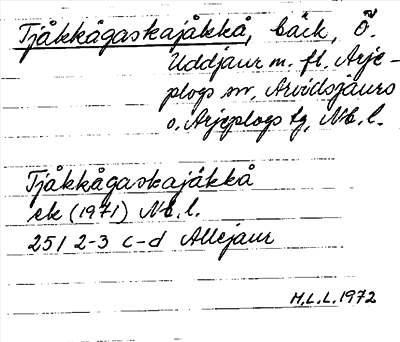 Tjåkkågaskajåkkå, bäck, Ö.
Uddjaur m. fl. Arje-
plogs sn, Arvidsjaurs
o. Arjeplogs tg, Nb. l.
Tjåkkågaskajåkkå
ek (1971) Nb. l.
251 2-3 c-d Allejaur
M.L.L. 1972